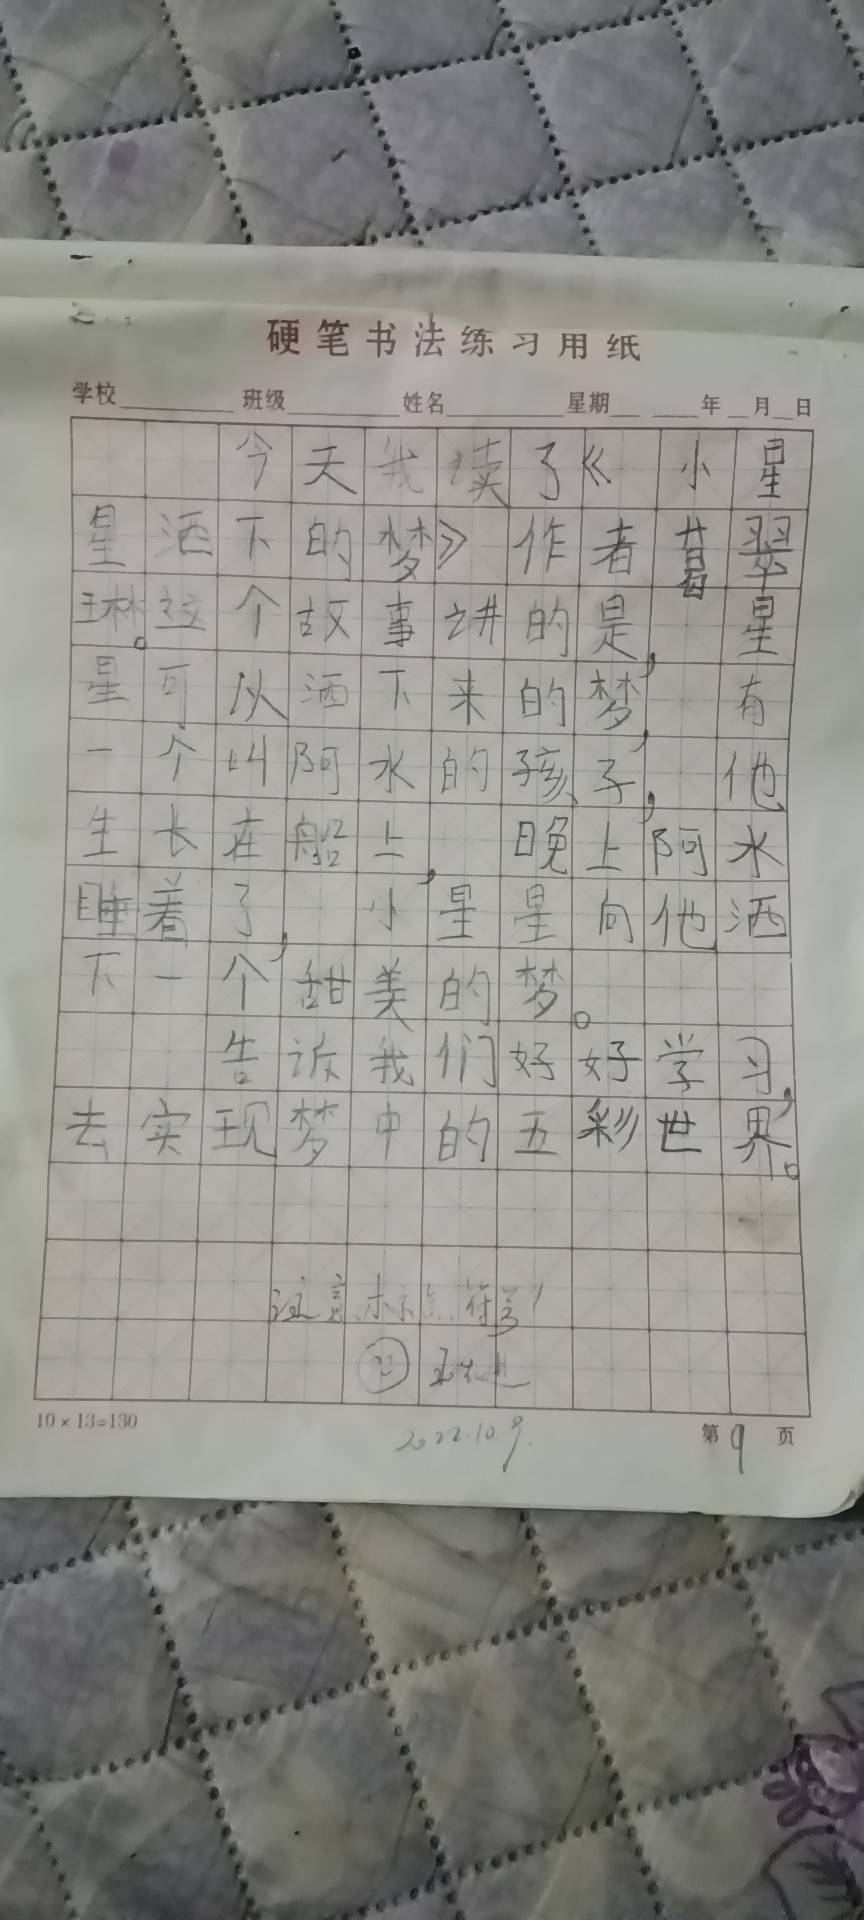 硬笔书法练习用纸
学校 班级 姓名 星期 年 月 日
今天我读了《小星
星洒下的梦》作者葛翠
琳。这个故事讲的是，星
星可以洒下来的梦，有
一个叫阿水的孩子，他
生长在船上，晚上阿水
睡着了，小星星向他洒
下一个，甜美的梦。
告诉我们好好学习，
去实现梦中的五彩世界。
注意标点符号！
2022.10.9.
10×13=130
第9页